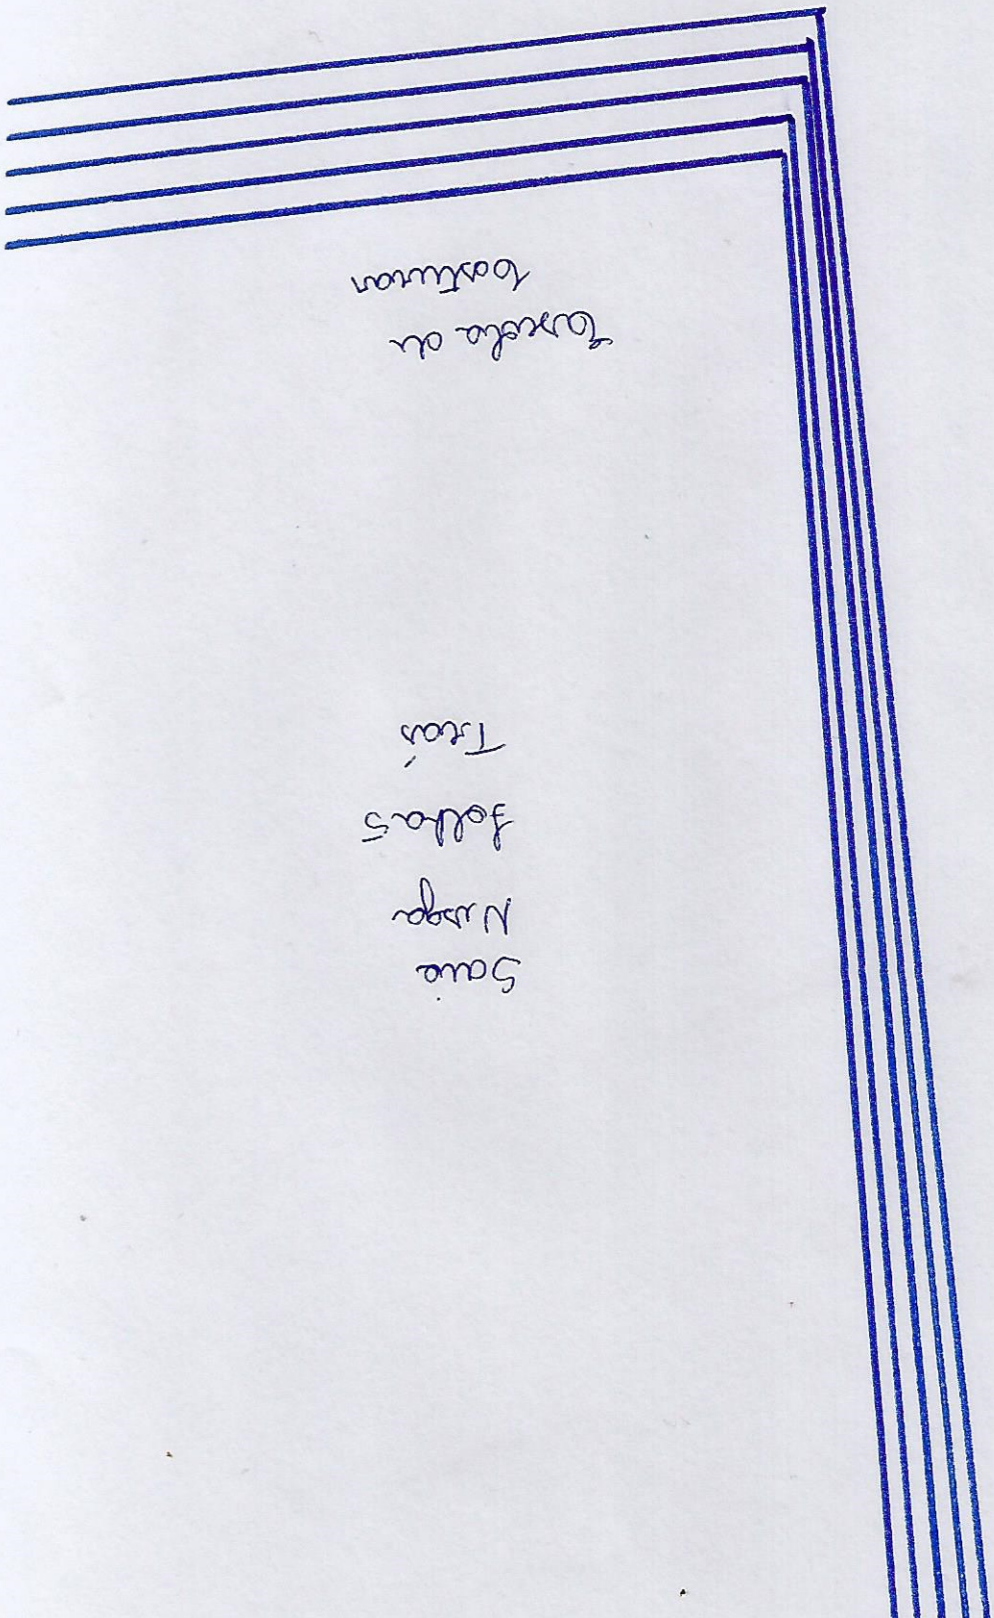 Saia
Nesga
folha 5
Trás
Escola de
Costuras